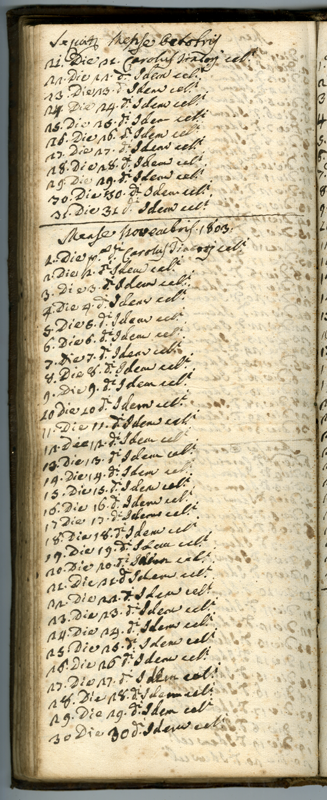 Mense Octobris
21. Die 21. Carolus celt.
22. Die 22. dt. Idem celt.
23. Die 23. dt. Idem celt.
24. Die 24. dt. Idem celt.
25. Die 25. dt. Idem celt.
26. Die 26. dt. Idem celt.
27. Die 27. dt. Idem celt.
28. Die 28. dt. Idem celt.
29. Die 29. dt. Idem celt.
30. Die 30. dt. Idem celt.
31. Die 31. dt. Idem celt.
Mense Novembris 1803.
1. Die dt. Carolus celt.
2. Die 2. dt. Idem celt.
3. Die 3. dt. Idem celt.
4. Die 4. dt. Idem celt.
5. Die 5. dt. Idem celt.
6. Die 6. dt. Idem celt.
7. Die 7. dt. Idem celt.
8. Die 8. dt. Idem celt.
9. Die 9. dt. Idem celt.
10 Die 10 dt. Idem celt.
11. Die 11. dt. Idem celt.
12. Die 12. dt. Idem celt.
13. Die 13. dt. Idem celt.
14. Die 14. dt. Idem celt.
15. Die 15. dt. Idem celt.
16. Die 16. dt. Idem celt.
17 Die 17. dt. Idem celt.
18. Die 18. dt. Idem celt.
19. Die 19. dt. Idem celt.
20. Die 20. dt. Idem celt.
21. Die 21. dt. Idem celt.
22. Die 22. dt. Idem celt.
23. Die 23. dt. Idem celt.
24. Die 24. dt. Idem celt.
25. Die 25. dt. Idem celt.
26. Die 26 dt. Idem celt.
27. Die 27. dt. Idem celt.
28. Die 28. dt. Idem celt.
29. Die 29. dt. Idem celt.
30 Die 30 dt. Idem celt.